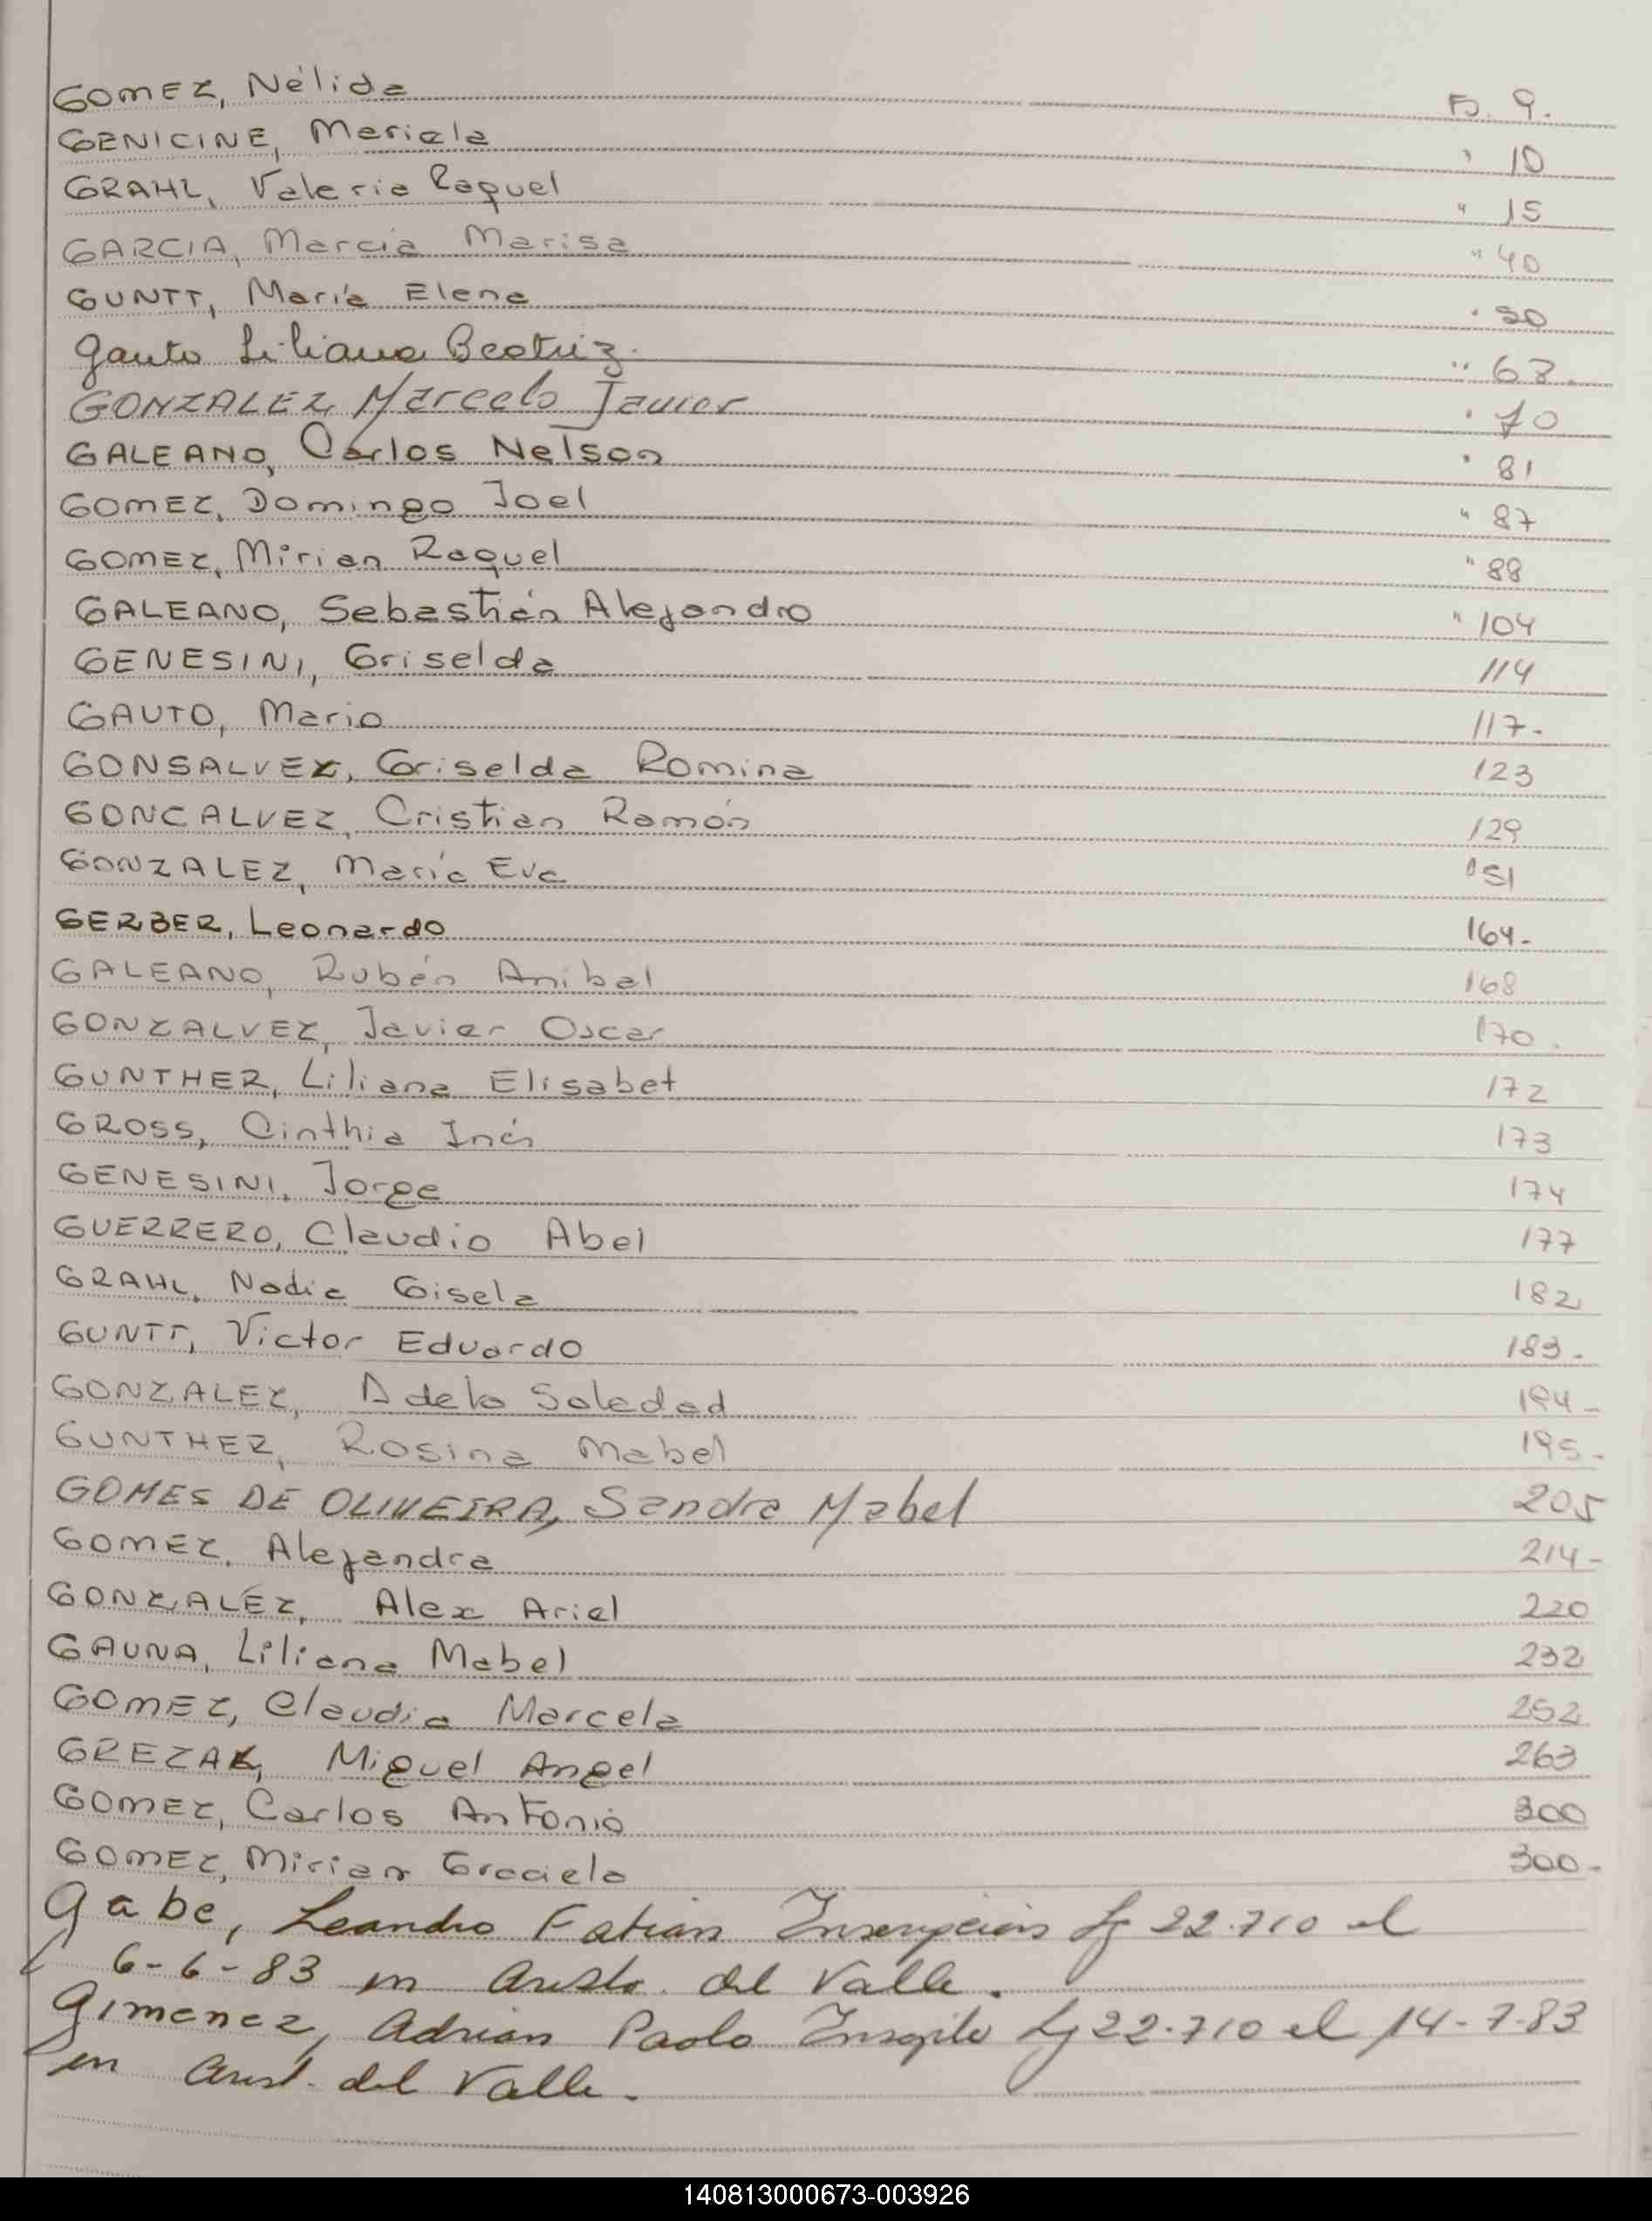 GOMEZ, Nélida Fo. 9.
GENICINE, Mariela " 10
GRAHL, Valeria Raquel " 15
GARCIA, Marcia Marisa " 40
GUNTT, María Elena "
Gauto Liliana Beatriz. " 68.
GONZALEZ Marcelo Javier " 70
GALEANO, Carlos Nelson " 81
GOMEZ, Domingo Joel " 87
GOMEZ, Mirian Raquel " 88
GALEANO, Sebastián Alejandro " 104
GENESINI, Griselda 114
GAUTO, Mario 117-
GONSALVEZ, Griselda Romina 123
GONCALVEZ, Cristian Ramón 129
GONZALEZ, María Eva 151
GERBER, Leonardo 164-
GALEANO, Rubén Anibal 168
GONZALVEZ, Javier Oscar 170.
GUNTHER, Liliana Elisabet 172
GROSS, Cinthia Inés 173
GENESINI, Jorge 174
GUERRERO, Claudio Abel 177
GRAHL, Nadia Gisela 182
GUNTT, Victor Eduardo 183-
GONZALEZ, Adela Soledad 194-
GUNTHER, Rosina Mabel 195-
GOMES DE OLIVEIRA, Sandra Mabel 205
GOMEZ, Alejandra 214-
GONZALEZ, Alex Ariel 220
GAUNA, Liliana Mabel 232
GOMEZ, Claudia Marcela 252
GREZAK, Miguel Angel 263
GOMEZ, Carlos Antonio 300
GOMEZ, Mirian Graciela 300-
Gabe, Leandro Fabián Inscripción Ley 22.710 el
6-6-83 en Aristo. del Valle.
Gimenez, Adrian Paolo Ley 22.710 el 14-7-83
en Arist. del Valle.
140813000673-003926